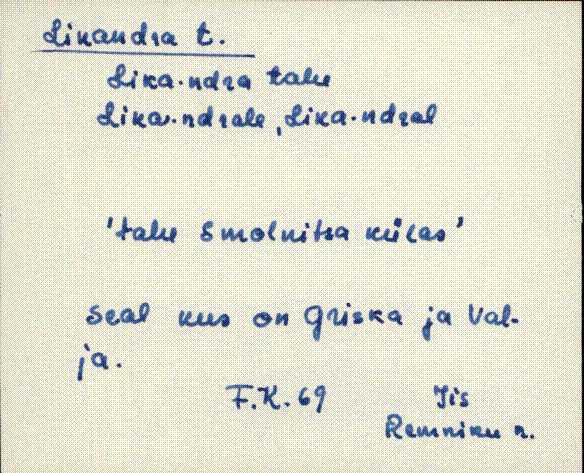 Likandra t.
Lika·ndra talu
Lika·ndrale, Lika·ndral
'talu Smolnitsa külas'
seal kus on Griska ja Val-
ja.
F.K. 69 Iis
Remniku n.